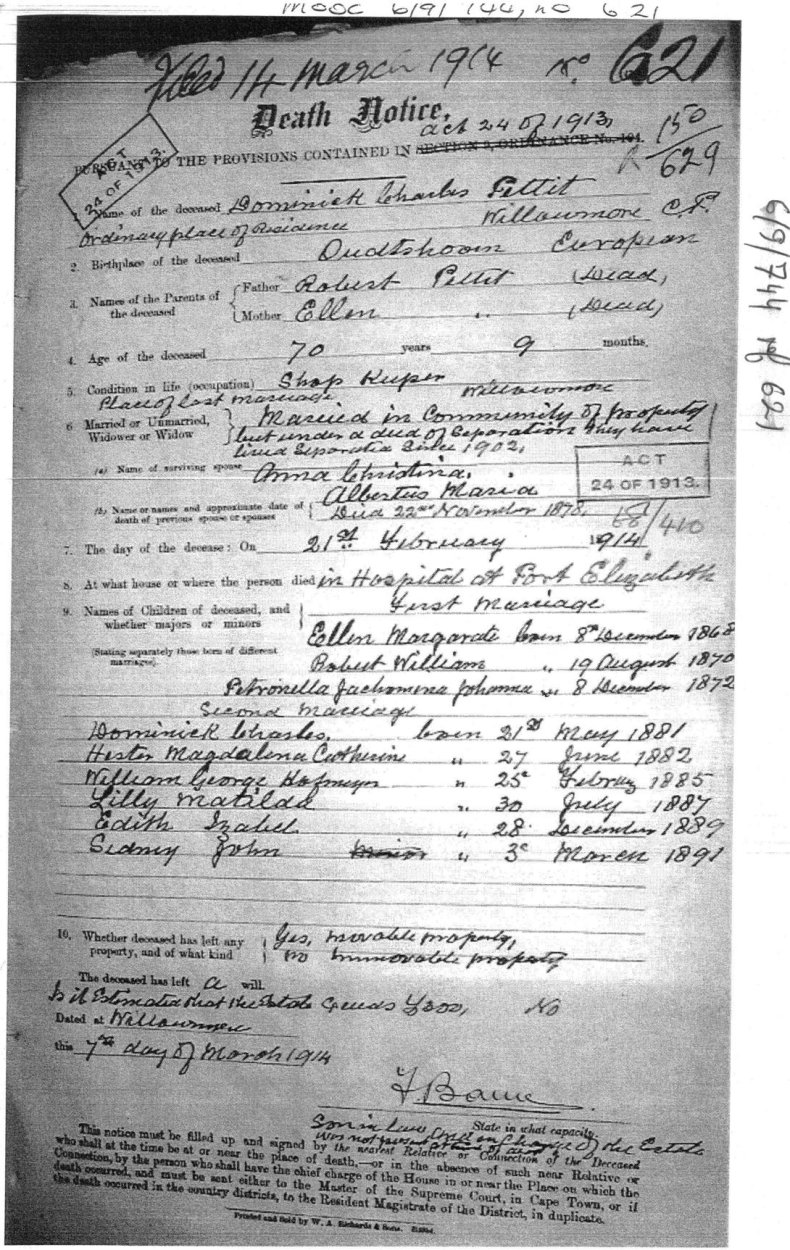 MOOC 6/9/744, no 621
Filed 14 March 1914 No 621
Death Notice,
Act 24 of 1913,
PURSUANT TO THE PROVISIONS CONTAINED IN SECTION 9, ORDINANCE No. 104.
ACT
24 OF 1913.
150
629
1. Name of the deceased Dominick Charles Pettit
Ordinary place of Residence Willowmore C.P.
2. Birthplace of the deceased Oudtshoorn European
3. Names of the Parents of the deceased
Father Robert Pettit (Dead)
Mother Ellen " (Dead)
4. Age of the deceased 70 years 9 months.
5. Condition in life (occupation) Shop Keeper
Place of last marriage Willowmore
6. Married or Unmarried, Widower or Widow
Married in Community of Property
but under a deed of Separation they have
lived Separate Since 1902.
(a) Name of surviving spouse Anna Christina.
ACT
24 OF 1913.
(b) Name or names and approximate date of death of previous spouse or spouses
Albertus Maria
Died 22nd November 1878.
68/410
7. The day of the decease: On 21st February 1914
8. At what house or where the person died in Hospital at Port Elizabeth
9. Names of Children of deceased, and whether majors or minors
(Stating separately those born of different marriages).
First Marriage
Ellen Margarate born 8th December 1868
Robert William " 19 August 1870
Petronella Jachomena Johanna " 8 December 1872
Second Marriage
Dominick Charles. born 21st May 1881
Hester Magdalena Catherine " 27 June 1882
William George Hofmeyer " 25 Februay 1885
Lilly Matilda " 30 July 1887
Edith Izabel " 28 December 1889
Sidney John Minor " 3 March 1891
10. Whether deceased has left any property, and of what kind
Yes, movable property,
no immovable property
The deceased has left a will.
Is it Estimated that the Estate Exceeds £300, No
Dated at Willowmore
this 7th day of March 1914
State in what capacity.
Son in law and in Charge of the Estate
was not present
This notice must be filled up and signed by the nearest Relative or Connection of the Deceased
who shall at the time be at or near the place of death,—or in the absence of such near Relative or
Connection, by the person who shall have the chief charge of the House in or near the Place on which the
death occurred, and must be sent either to the Master of the Supreme Court, in Cape Town, or if
the death occurred in the country districts, to the Resident Magistrate of the District, in duplicate.
Printed and Sold by W. A. Richards & Sons.
6/9/744 ref 621